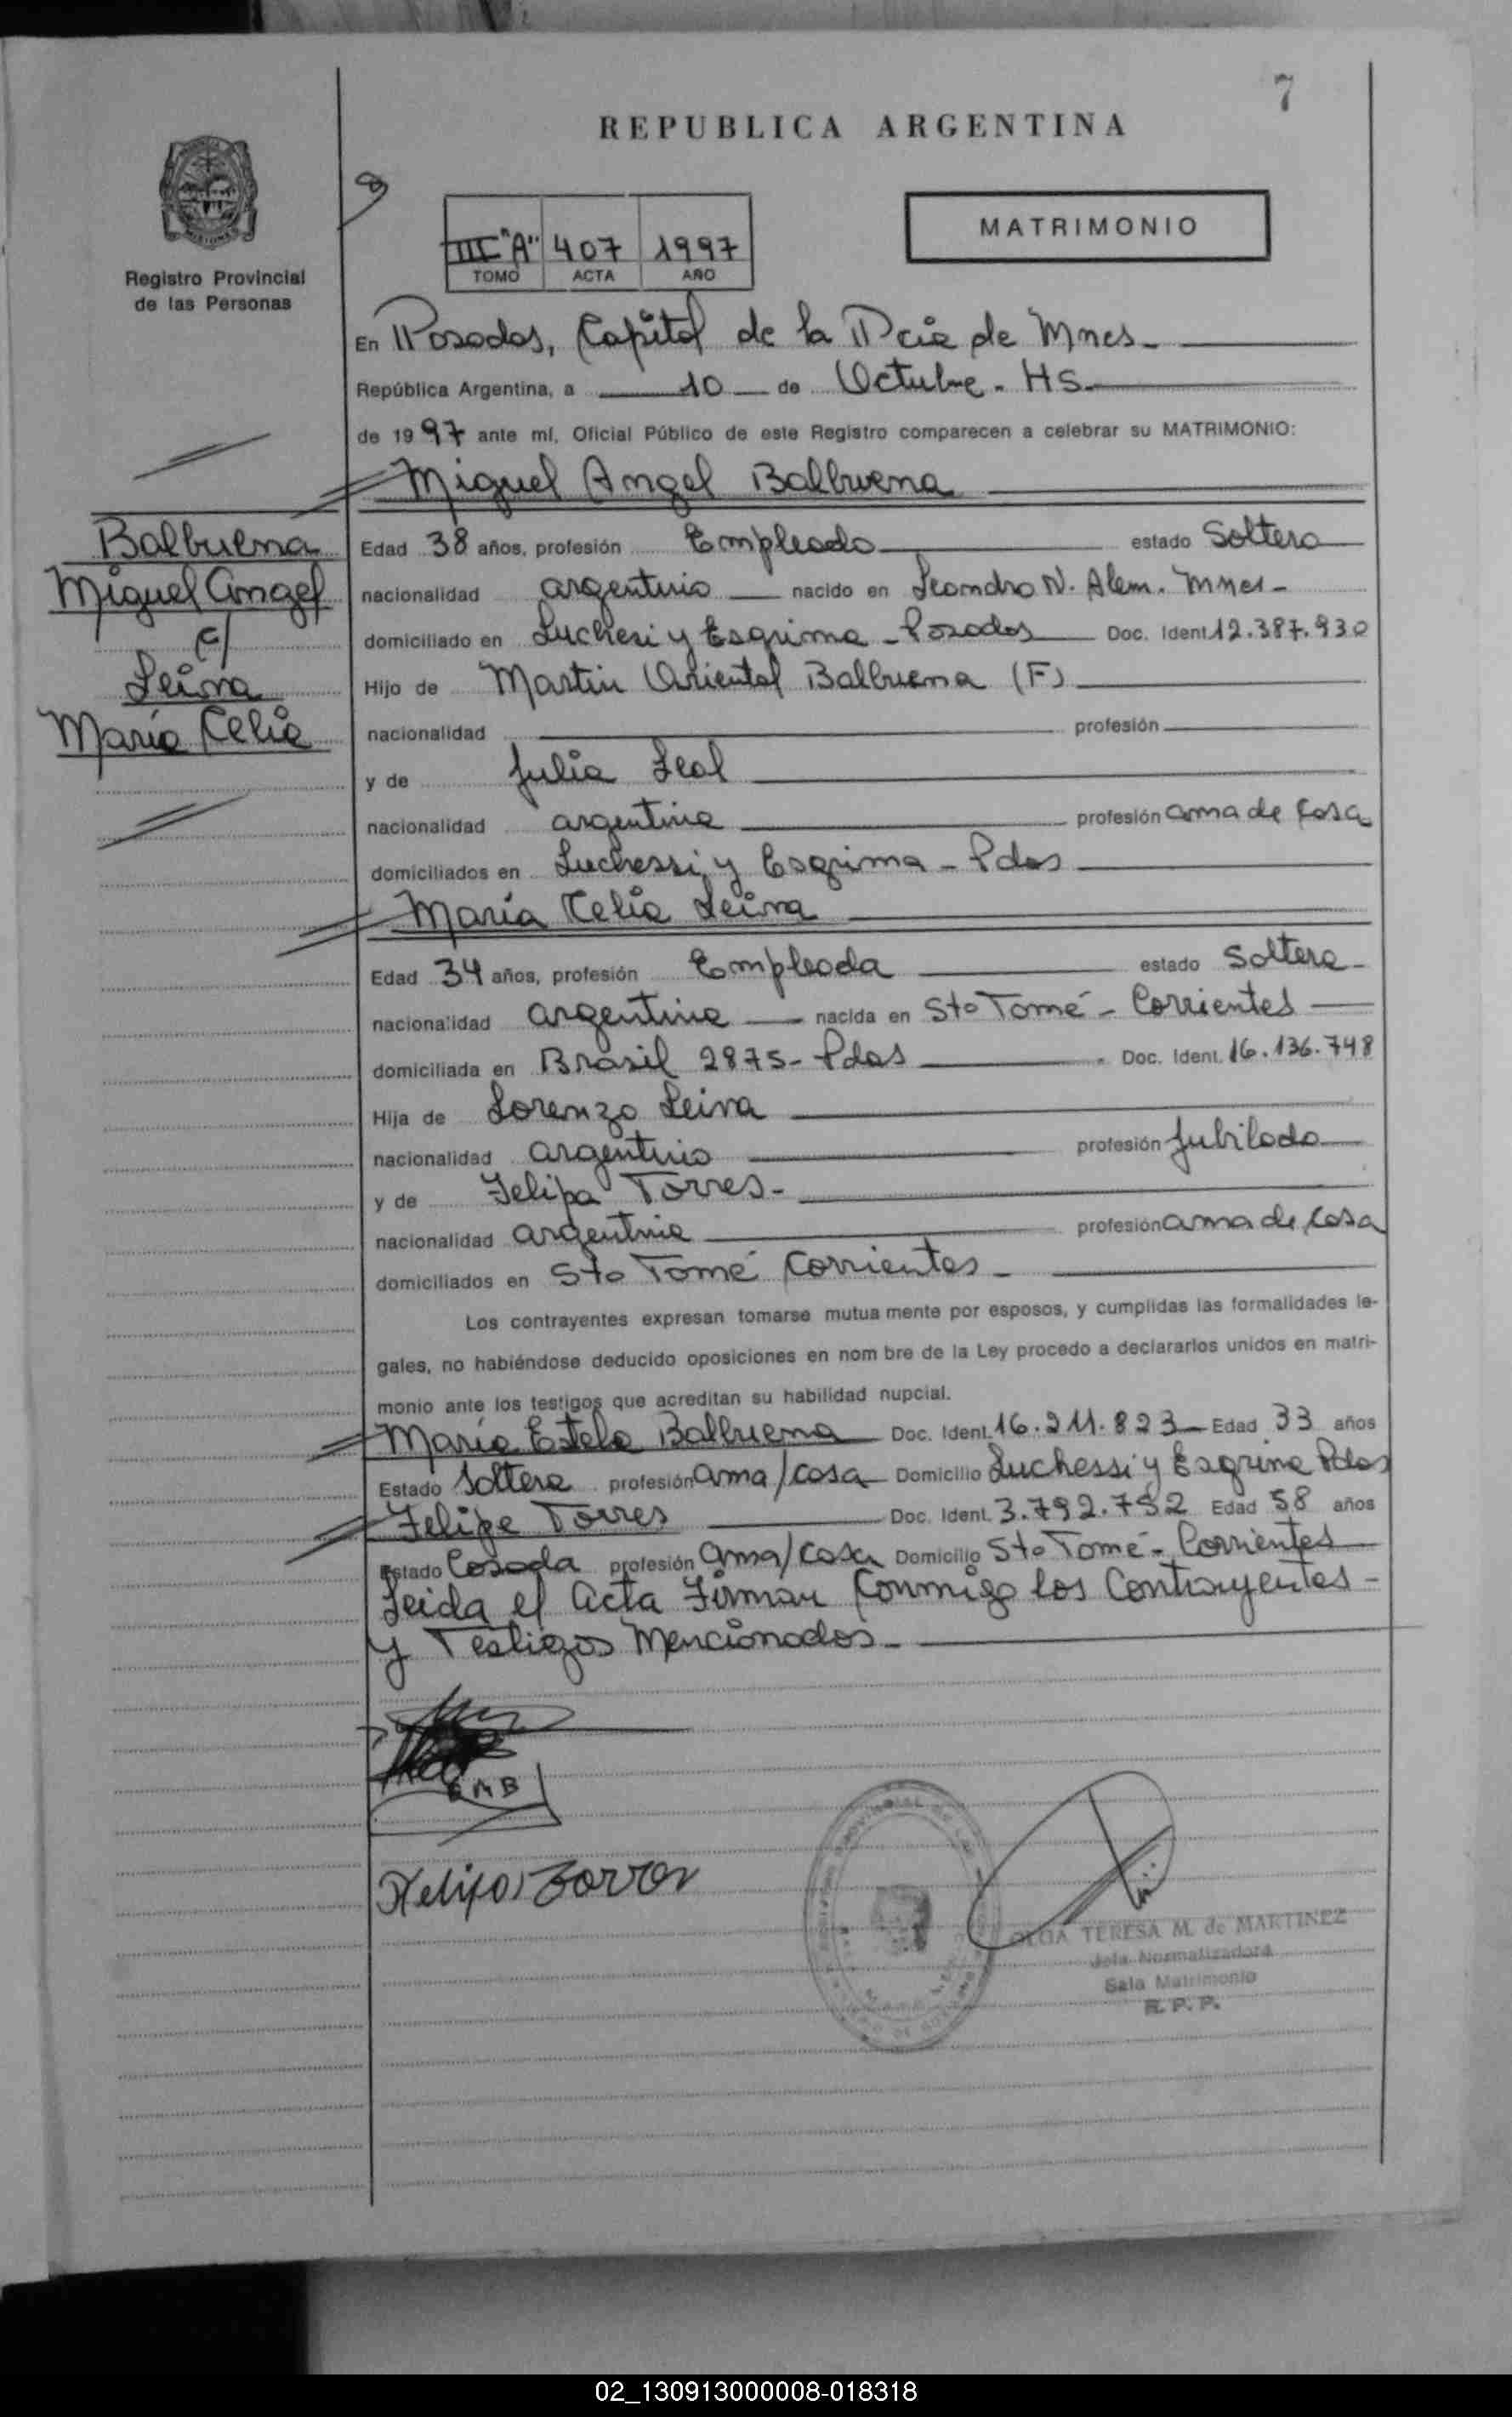 7
REPUBLICA ARGENTINA
MATRIMONIO
III "A" 407 1997
TOMO ACTA AÑO
Registro Provincial
de las Personas
En Posadas, Capital de la Pcia de Mnes
República Argentina, a 10 de Octubre - HS.
de 1997 ante mí, Oficial Público de este Registro comparecen a celebrar su MATRIMONIO:
Miguel Angel Balbuena
Balbuena
Miguel Angel
c/
Leiva
María Celia
Edad 38 años, profesión Empleado estado Soltero
nacionalidad argentino nacido en Leandro N. Alem. Mnes-
domiciliado en Luchesi y Esgrima - Posadas Doc. Ident. 12.387.930
Hijo de Martin Oriental Balbuena (F)
nacionalidad profesión
y de Julia Leal
nacionalidad argentina profesión ama de casa
domiciliados en Luchessi y Esgrima - Pdas
María Celia Leiva
Edad 34 años, profesión Empleada estado Soltera-
nacionalidad argentina nacida en Sto Tomé - Corrientes
domiciliada en Brasil 2875- Pdas Doc. Ident. 16.136.748
Hija de Lorenzo Leiva
nacionalidad argentino profesión Jubilado
y de Felipa Torres-
nacionalidad argentina profesión ama de casa
domiciliados en Sto Tomé Corrientes -
Los contrayentes expresan tomarse mutua mente por esposos, y cumplidas las formalidades le-
gales, no habiéndose deducido oposiciones en nom bre de la Ley procedo a declararlos unidos en matri-
monio ante los testigos que acreditan su habilidad nupcial.
María Estela Balbuena Doc. Ident. 16.211.823 Edad 33 años
Estado Soltera profesión ama/casa Domicilio Luchessi y Esgrima Pdas
Felipe Torres Doc. Ident. 3.792.752 Edad 58 años
Estado Casada profesión ama/casa Domicilio Sto Tomé - Corrientes
Leida el acta Firman Conmigo los Contrayentes -
y Testigos Mencionados -
EMB
Felipa Torres
OLGA TERESA M. de MARTINEZ
Jefa Normalizadora
Sala Matrimonio
R. P. P.
02_130913000008-018318